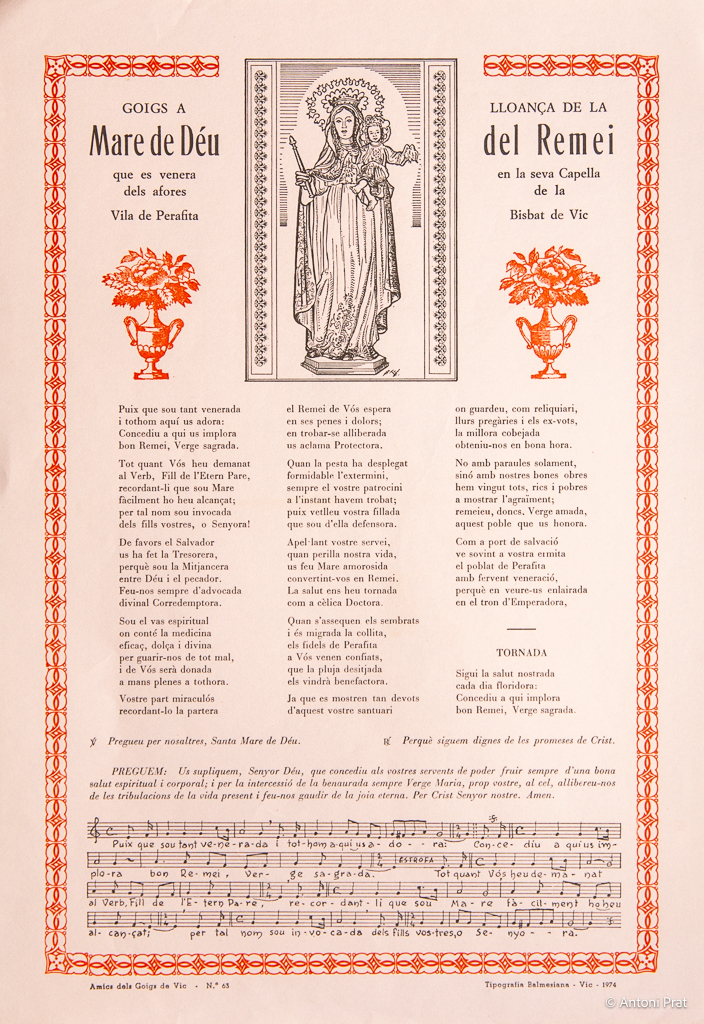 GOIGS A LLOANÇA DE LA
Mare de Déu del Remei
que es venera en la seva Capella
dels afores de la
Vila de Perafita Bisbat de Vic
Puix que sou tant venerada
i tothom aquí us adora:
Concediu a qui us implora
bon Remei, Verge sagrada.
Tot quant Vós heu demanat
al Verb, Fill de l'Etern Pare,
recordant-li que sou Mare
fàcilment ho heu alcançat;
per tal nom sou invocada
dels fills vostres, o Senyora!
De favors el Salvador
us ha fet la Tresorera,
perquè sou la Mitjancera
entre Déu i el pecador.
Feu-nos sempre d'advocada
divinal Corredemptora.
Sou el vas espiritual
on conté la medicina
eficaç, dolça i divina
per guarir-nos de tot mal,
i de Vós serà donada
a mans plenes a tothora.
Vostre part miraculós
recordant-lo la partera
el Remei de Vós espera
en ses penes i dolors;
en trobar-se alliberada
us aclama Protectora.
Quan la pesta ha desplegat
formidable l'extermini,
sempre el vostre patrocini
a l'instant havem trobat;
puix vetlleu vostra fillada
que sou d'ella defensora.
Apel·lant vostre servei,
quan perilla nostra vida,
us feu Mare amorosida
convertint-vos en Remei.
La salut ens heu tornada
com a cèlica Doctora.
Quan s'assequen els sembrats
i és migrada la collita,
els fidels de Perafita
a Vós venen confiats,
que la pluja desitjada
els vindrà benefactora.
Ja que es mostren tan devots
d'aquest vostre santuari
on guardeu, com reliquiari,
llurs pregàries i els ex-vots,
la millora cobejada
obteniu-nos en bona hora.
No amb paraules solament,
sinó amb nostres bones obres
hem vingut tots, rics i pobres
a mostrar l'agraïment;
remeieu, doncs, Verge amada,
aquest poble que us honora.
Com a port de salvació
ve sovint a vostra ermita
el poblat de Perafita
amb fervent veneració,
perquè en veure-us enlairada
en el tron d'Emperadora,
TORNADA
Sigui la salut nostrada
cada dia floridora:
Concediu a qui implora
bon Remei, Verge sagrada.
℣ Pregueu per nosaltres, Santa Mare de Déu. ℟ Perquè siguem dignes de les promeses de Crist.
PREGUEM: Us supliquem, Senyor Déu, que concediu als vostres servents de poder fruir sempre d'una bona
salut espiritual i corporal; i per la intercessió de la benaurada sempre Verge Maria, prop vostre, al cel, allibereu-nos
de les tribulacions de la vida present i feu-nos gaudir de la joia eterna. Per Crist Senyor nostre. Amen.
Puix que sou tant ve-ne-ra-da i tot-hom a-quí us a-do--ra: Con-ce-diu a qui us im-
ESTROFA
plo-ra bon Re-mei, Ver-ge sa-gra-da. Tot quant Vós heu de-ma-nat
al Verb, Fill de l'E-tern Pa-re, re-cor-dant-li que sou Ma-re fà-cil-ment ho heu
al-can-çat; per tal nom sou in-vo-ca-da dels fills vos-tres, o Se-nyo--ra.
Amics dels Goigs de Vic - N.º 63 Tipografia Balmesiana - Vic - 1974
© Antoni Prat